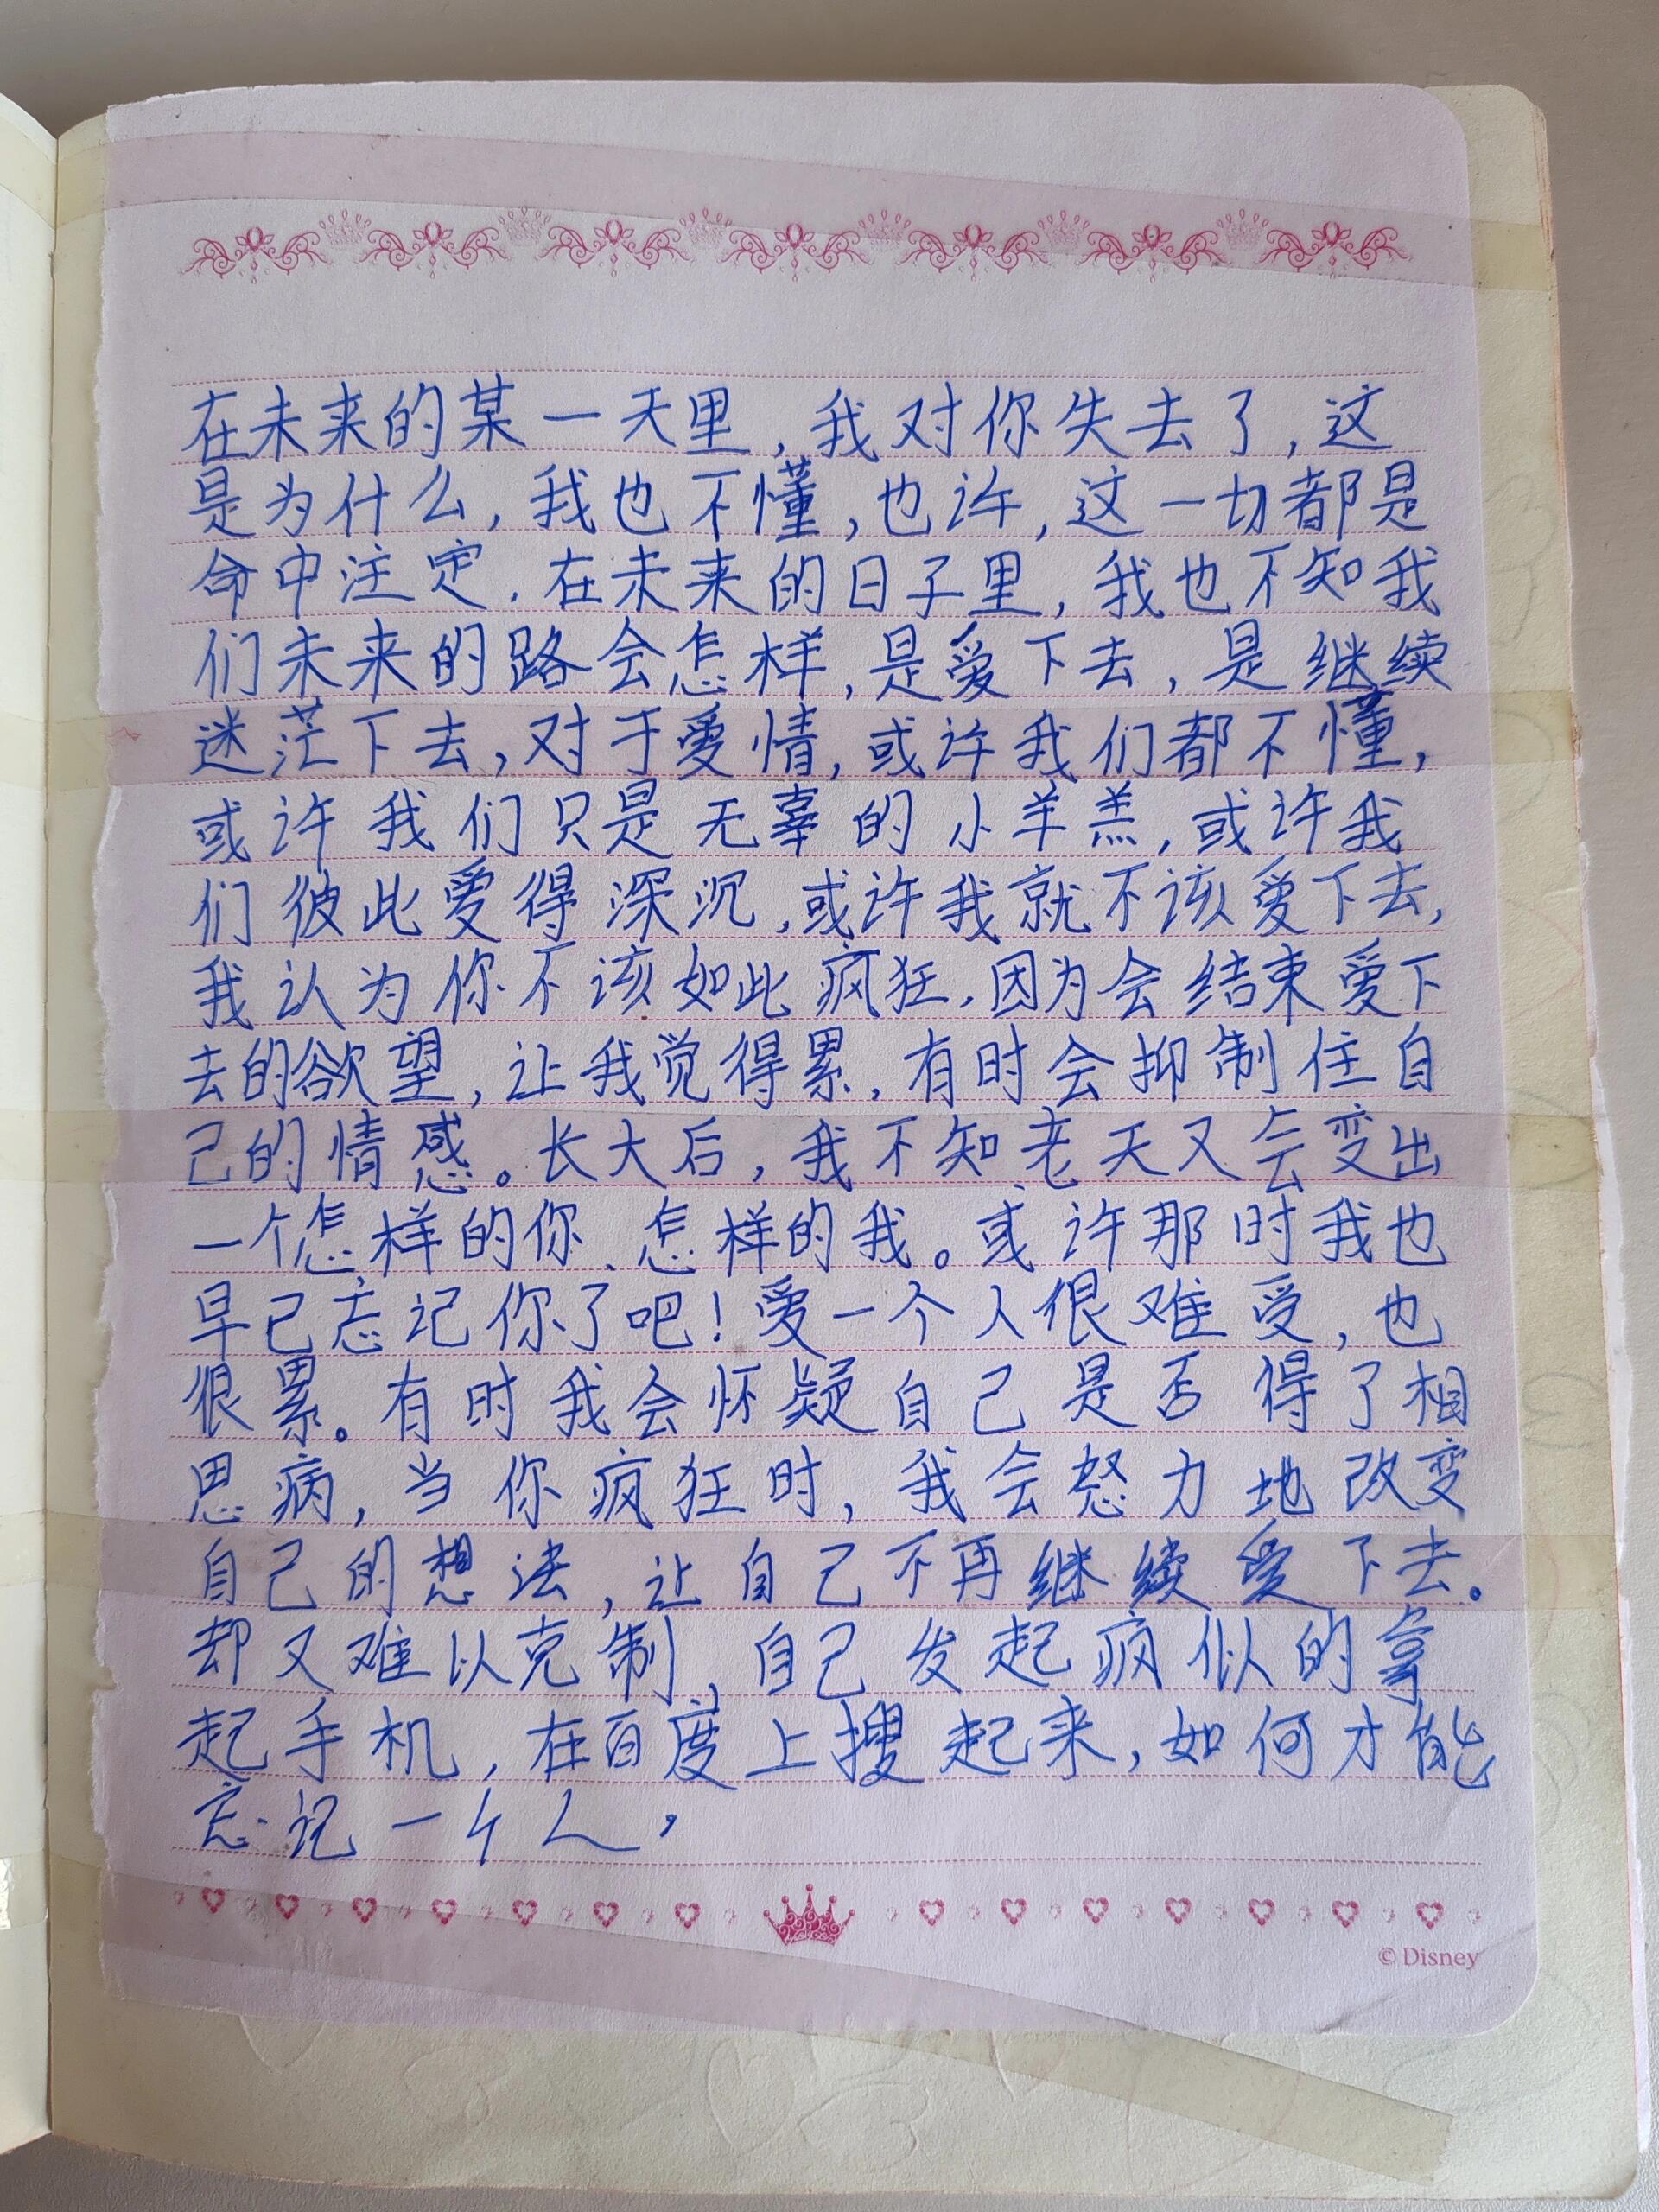 在未来的某一天里,我对你失去了,这
是为什么,我也不懂,也许,这一切都是
命中注定.在未来的日子里,我也不知我
们未来的路会怎样,是爱下去,是继续
迷茫下去,对于爱情,或许我们都不懂,
或许我们只是无辜的小羊羔,或许我
们彼此爱得深沉,或许我就不该爱下去,
我认为你不该如此疯狂,因为会结束爱下
去的欲望,让我觉得累,有时会抑制住自
己的情感。长大后,我不知老天又会变出
一个怎样的你、怎样的我。或许那时我也
早已忘记你了吧!爱一个人很难受,也
很累。有时我会怀疑自己是否得了相
思病,当你疯狂时,我会努力地改变
自己的想法,让自己不再继续爱下去。
却又难以克制,自己发起疯似的拿
起手机,在百度上搜起来,如何才能
忘记一个人,
© Disney